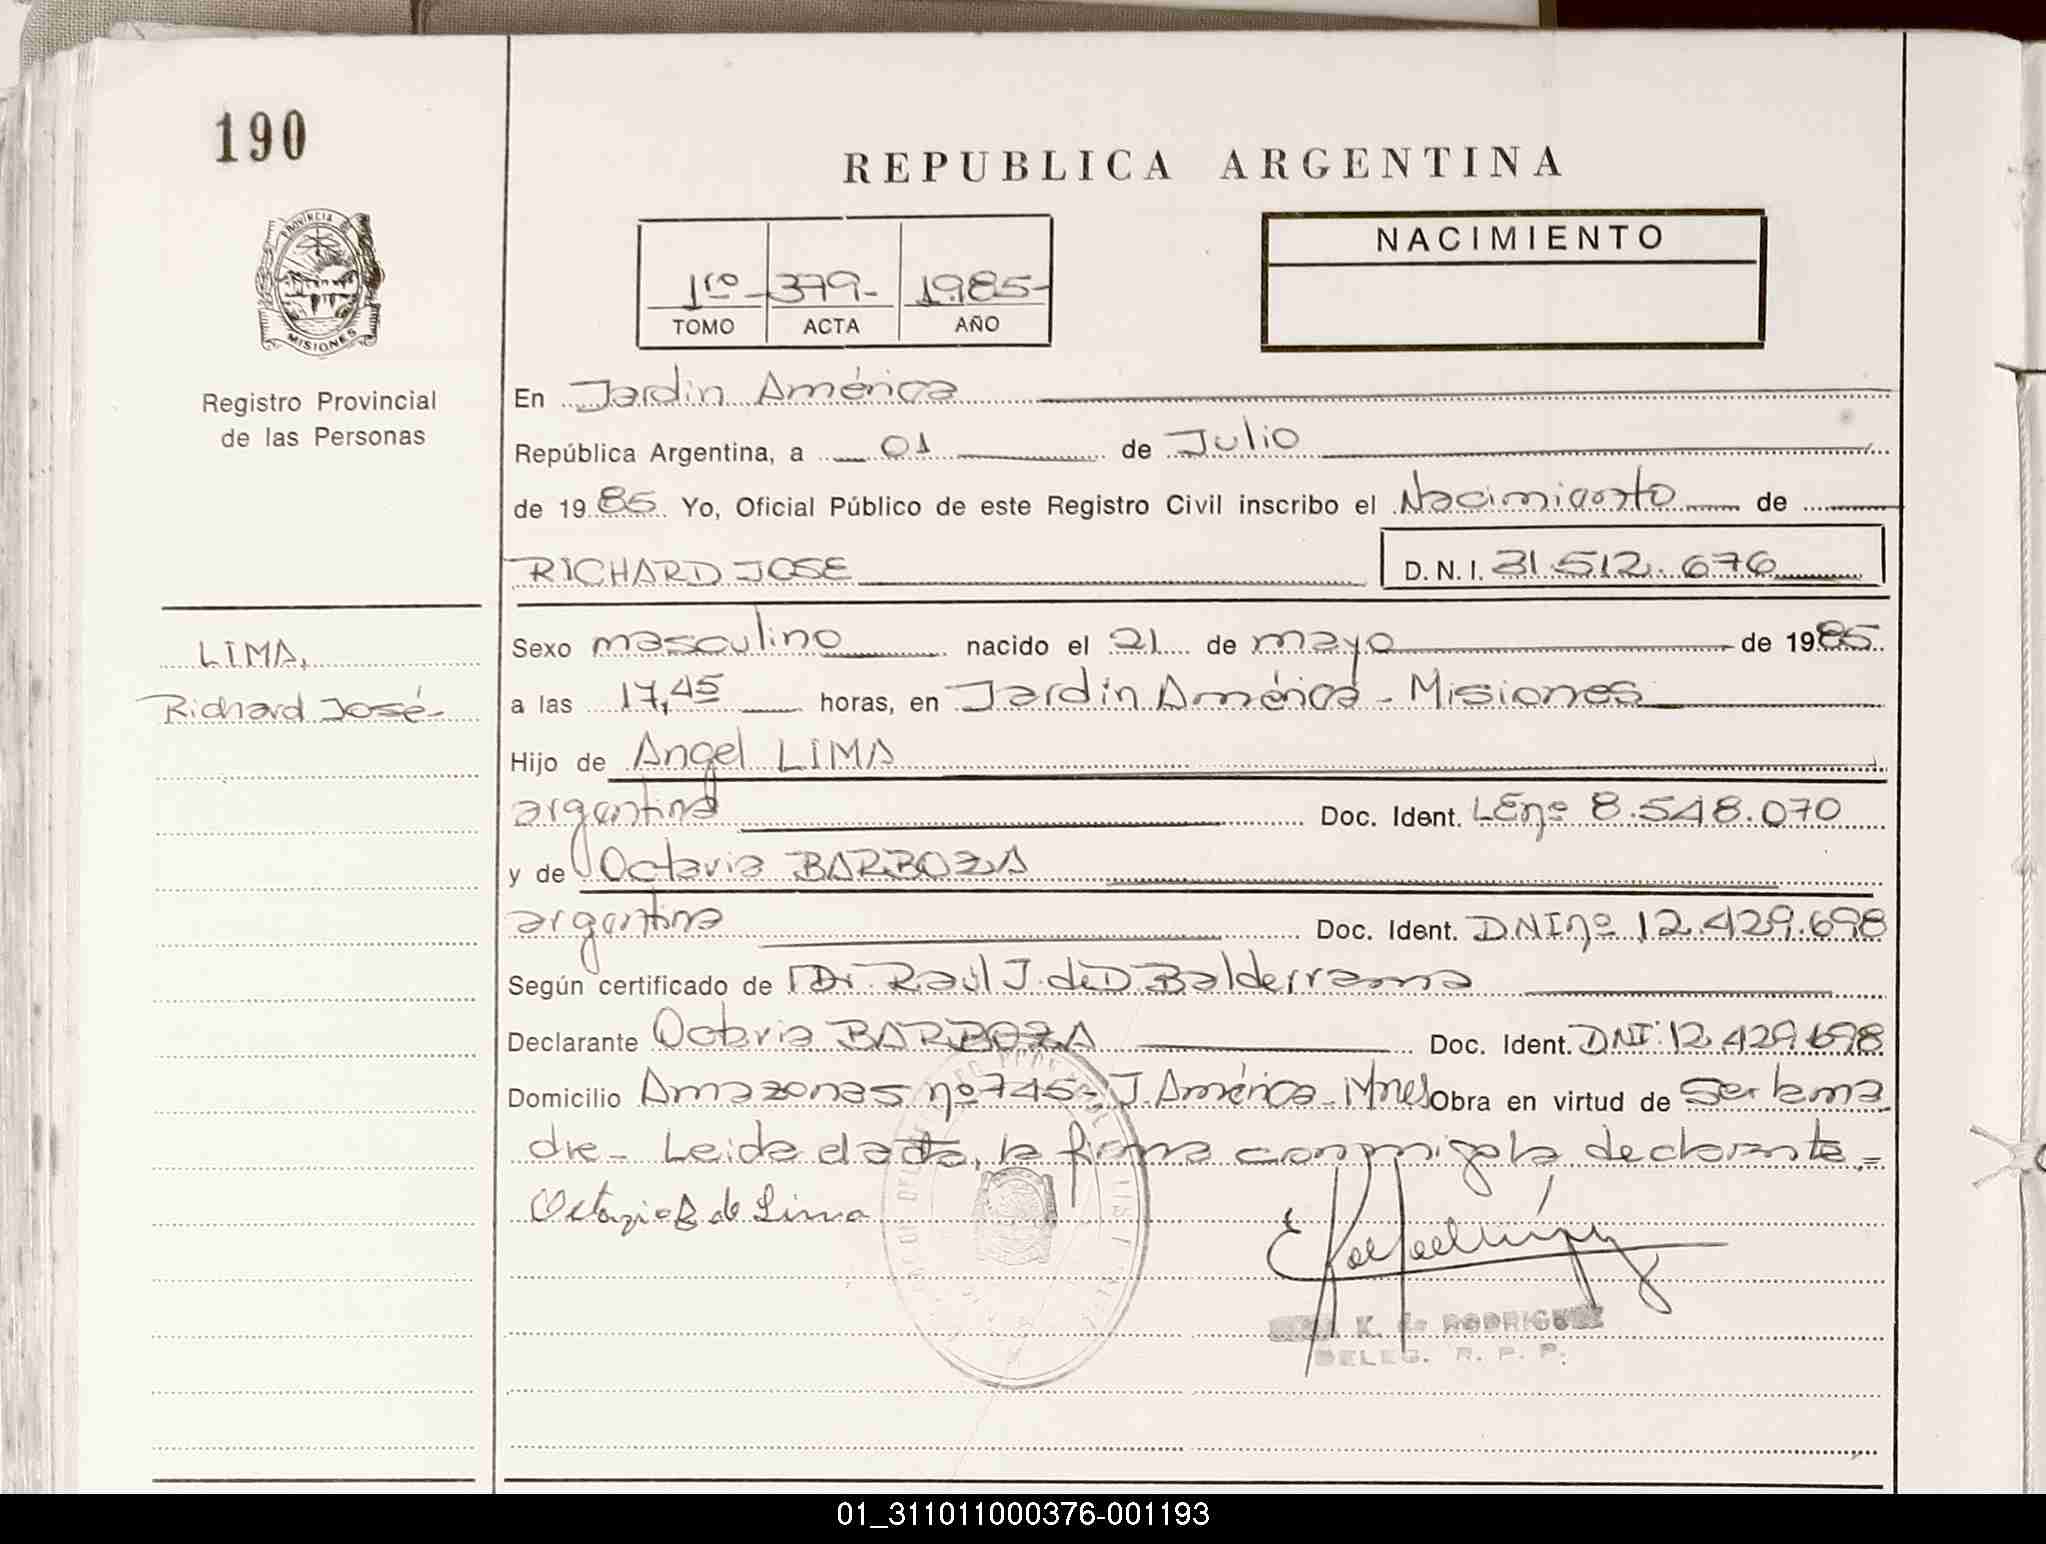 190
REPUBLICA ARGENTINA
PROVINCIA DE
MISIONES
Registro Provincial
de las Personas
NACIMIENTO
1ro - 379- 1985-
TOMO ACTA AÑO
En Jardin América
República Argentina, a 01 de Julio
de 1985 Yo, Oficial Público de este Registro Civil inscribo el Nacimiento de
RICHARD JOSE D.N.I. 31.512.676
LIMA,
Richard José-
Sexo masculino nacido el 21 de mayo de 1985
a las 17,45 horas, en Jardin América - Misiones
Hijo de Angel LIMA
argentina Doc. Ident. LEnº 8.548.070
y de Octavia BARBOZA
argentina Doc. Ident. DNInº 12.429.698
Según certificado de Dr. Raúl J. de D. Balderrama
Declarante Octavia BARBOZA Doc. Ident. DNI: 12.429.698
Domicilio Amazonas nº 745-, J. América - Mnes Obra en virtud de Ser la ma
dre - Leida el acta, la firma conmigo la declarante.=
Octavia B de Lima
K. de RODRIGUEZ
DELEG. R. P. P.
01_311011000376-001193